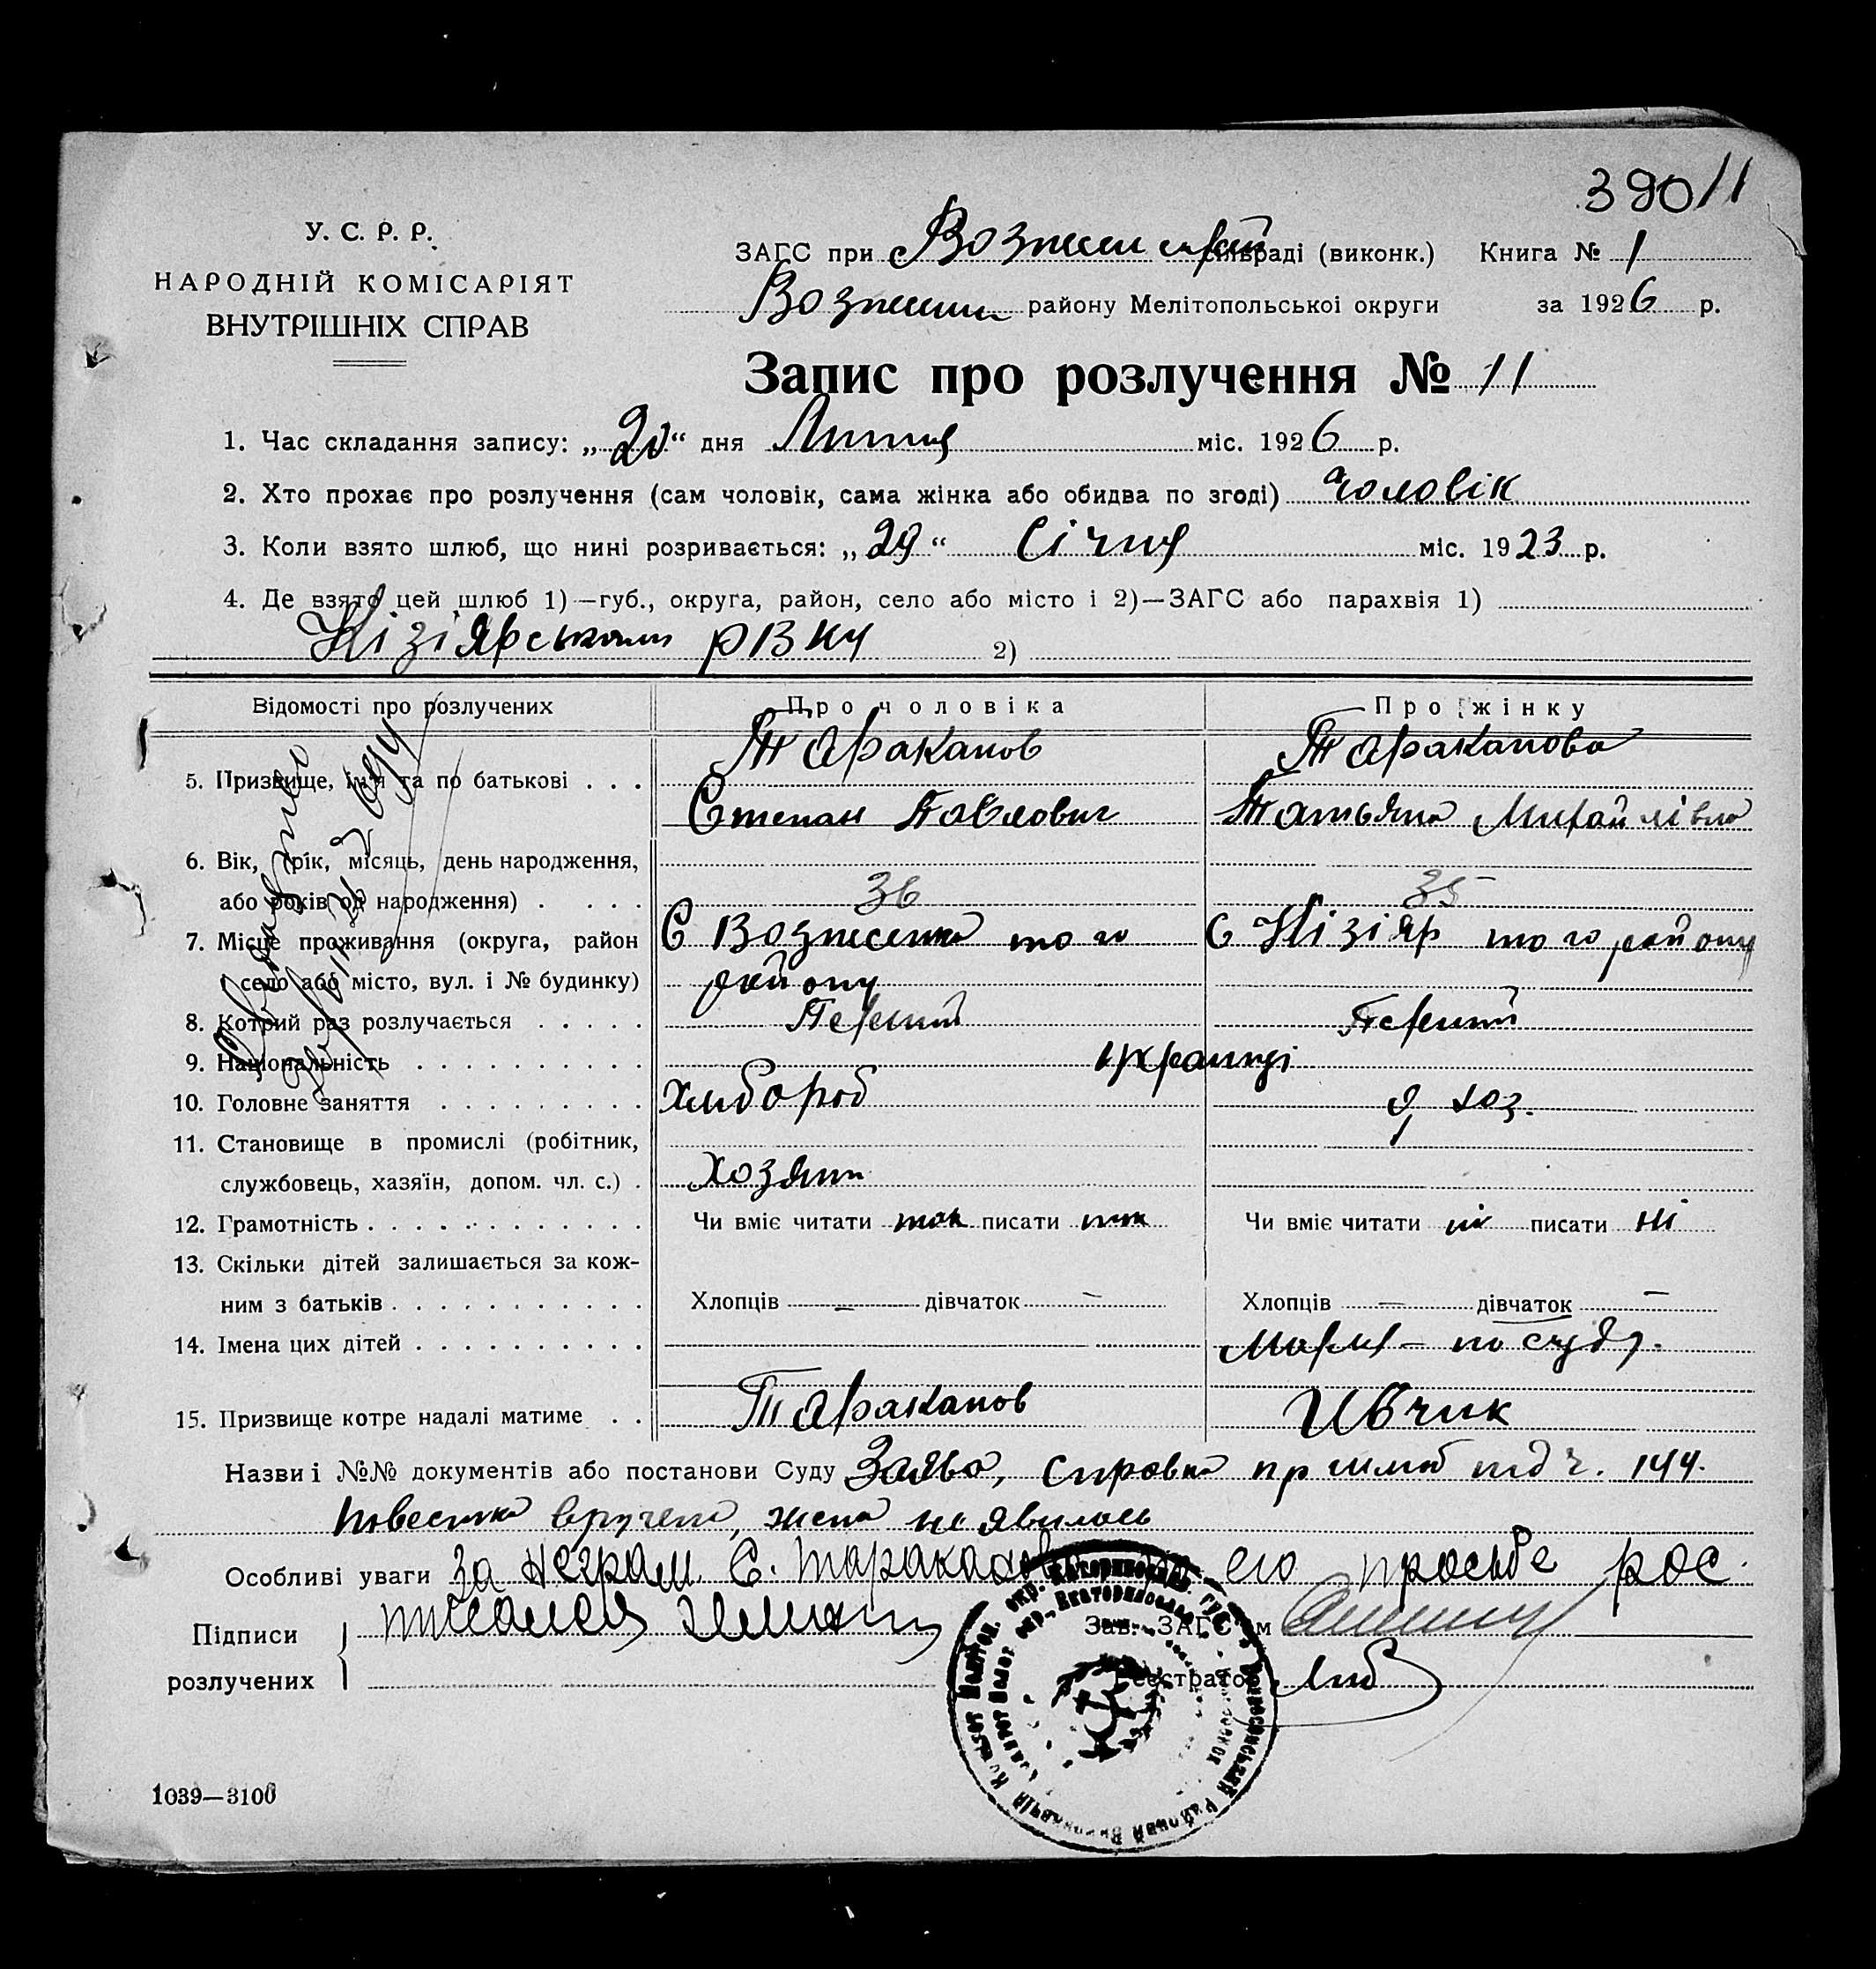 390/11
У. С. Р. Р.
НАРОДНІЙ КОМІСАРІЯТ
ВНУТРІШНІХ СПРАВ
ЗАГС при Вознесенській сільраді (виконк.) Книга № 1
Вознесен району Мелітопольської округи за 1926 р.
Запис про розлучення № 11
1. Час складання запису: „20“ дня Липня міс. 1926 р.
2. Хто прохає про розлучення (сам чоловік, сама жінка або обидва по згоді) чоловік
3. Коли взято шлюб, що нині розривається: „29“ Січня міс. 1923 р.
4. Де взято цей шлюб 1)—губ., округа, район, село або місто і 2)—ЗАГС або парахвія 1)
Кізіярським РВКу 2)
Відомості про розлучених Про чоловіка Про жінку
Тараканов Тараканова
5. Призвище, ім'я та по батькові . . .
Степан Павлович Татьяна Михайлівна
6. Вік, (рік, місяць, день народження,
або років од народження) . . . . 36 35
7. Місце проживання (округа, район С Вознесенка того С Кізіяр того району
село або місто, вул. і № будинку) району
8. Котрий раз розлучається . . . . . Первий Первий
9. Національність . . . . . . . . . . українці
10. Головне заняття . . . . . . . . . Хлібороб д. хоз.
11. Становище в промислі (робітник,
службовець, хазяїн, допом. чл. с.) . Хозяин
12. Грамотність . . . . . . . . . . . . Чи вміє читати так писати так Чи вміє читати ні писати ні
13. Скільки дітей залишається за кож-
ним з батьків . . . . . . . . . . . Хлопців — дівчаток — Хлопців — дівчаток —
14. Імена цих дітей . . . . . . . . . . Мария — по суду.
15. Призвище котре надалі матиме . . Тараканов Ивчик
Назви і №№ документів або постанови Суду Заява, справка пр шлюб під ч. 144.
повестка вручена, жена не явилась
Особливі уваги за неграм. С. Тараканова по его просьбе рос
Підписи писался
розлучених
Зав. ЗАГС'ом
Реєстратор
1039—3100